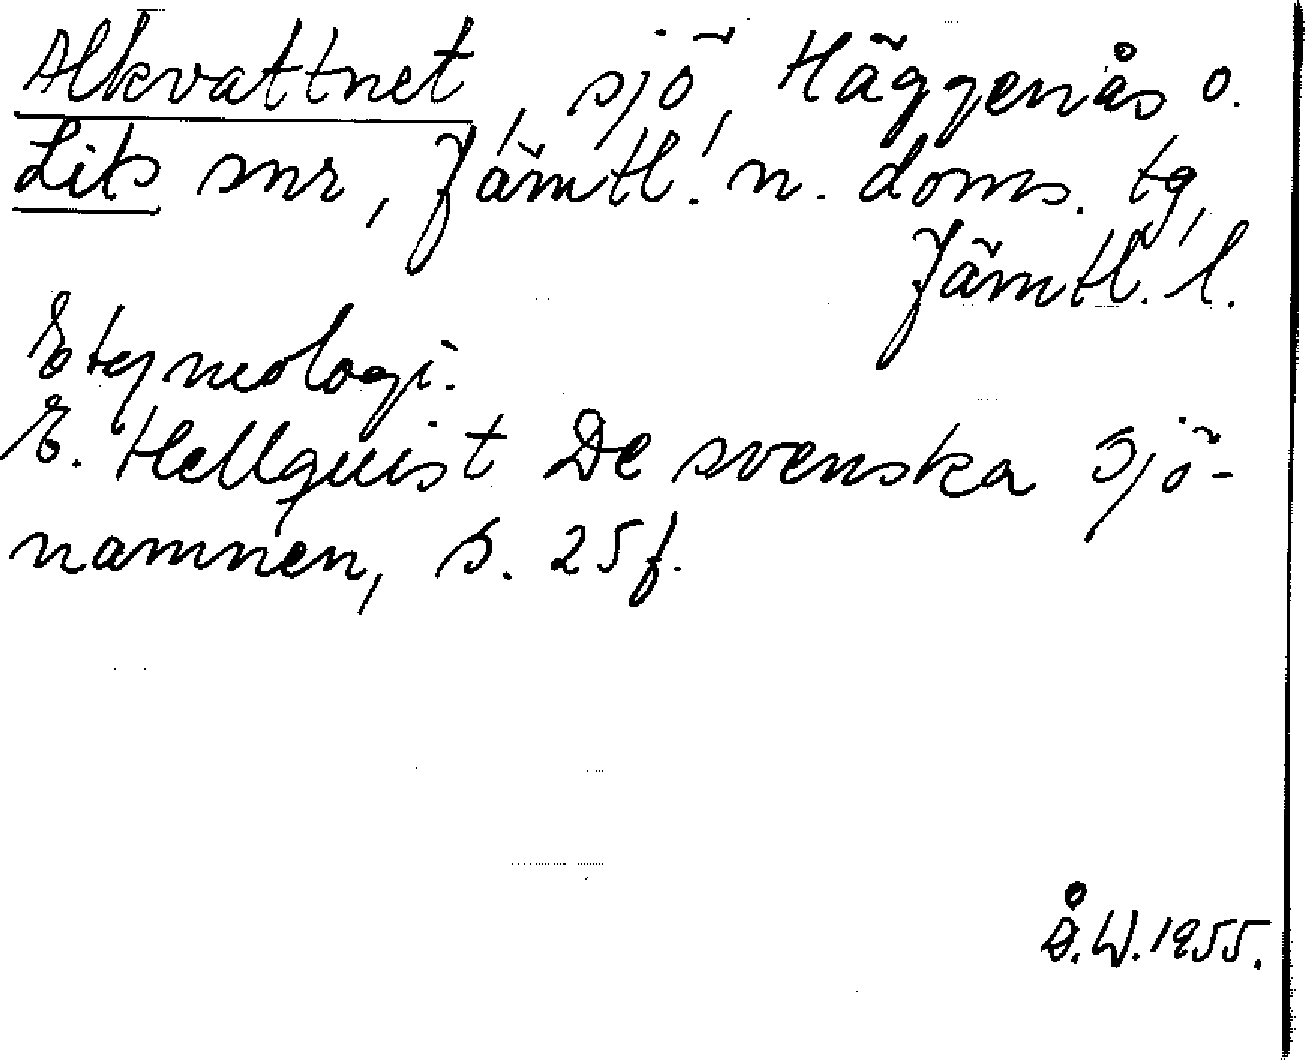 Alkvattnet, sjö, Häggenås o.
Lits snr, Jämtl. n. doms. tg,
Jämtl. l.
Etymologi.
E. Hellquist De svenska sjö-
namnen, s. 25 f.
Å. W. 1955.